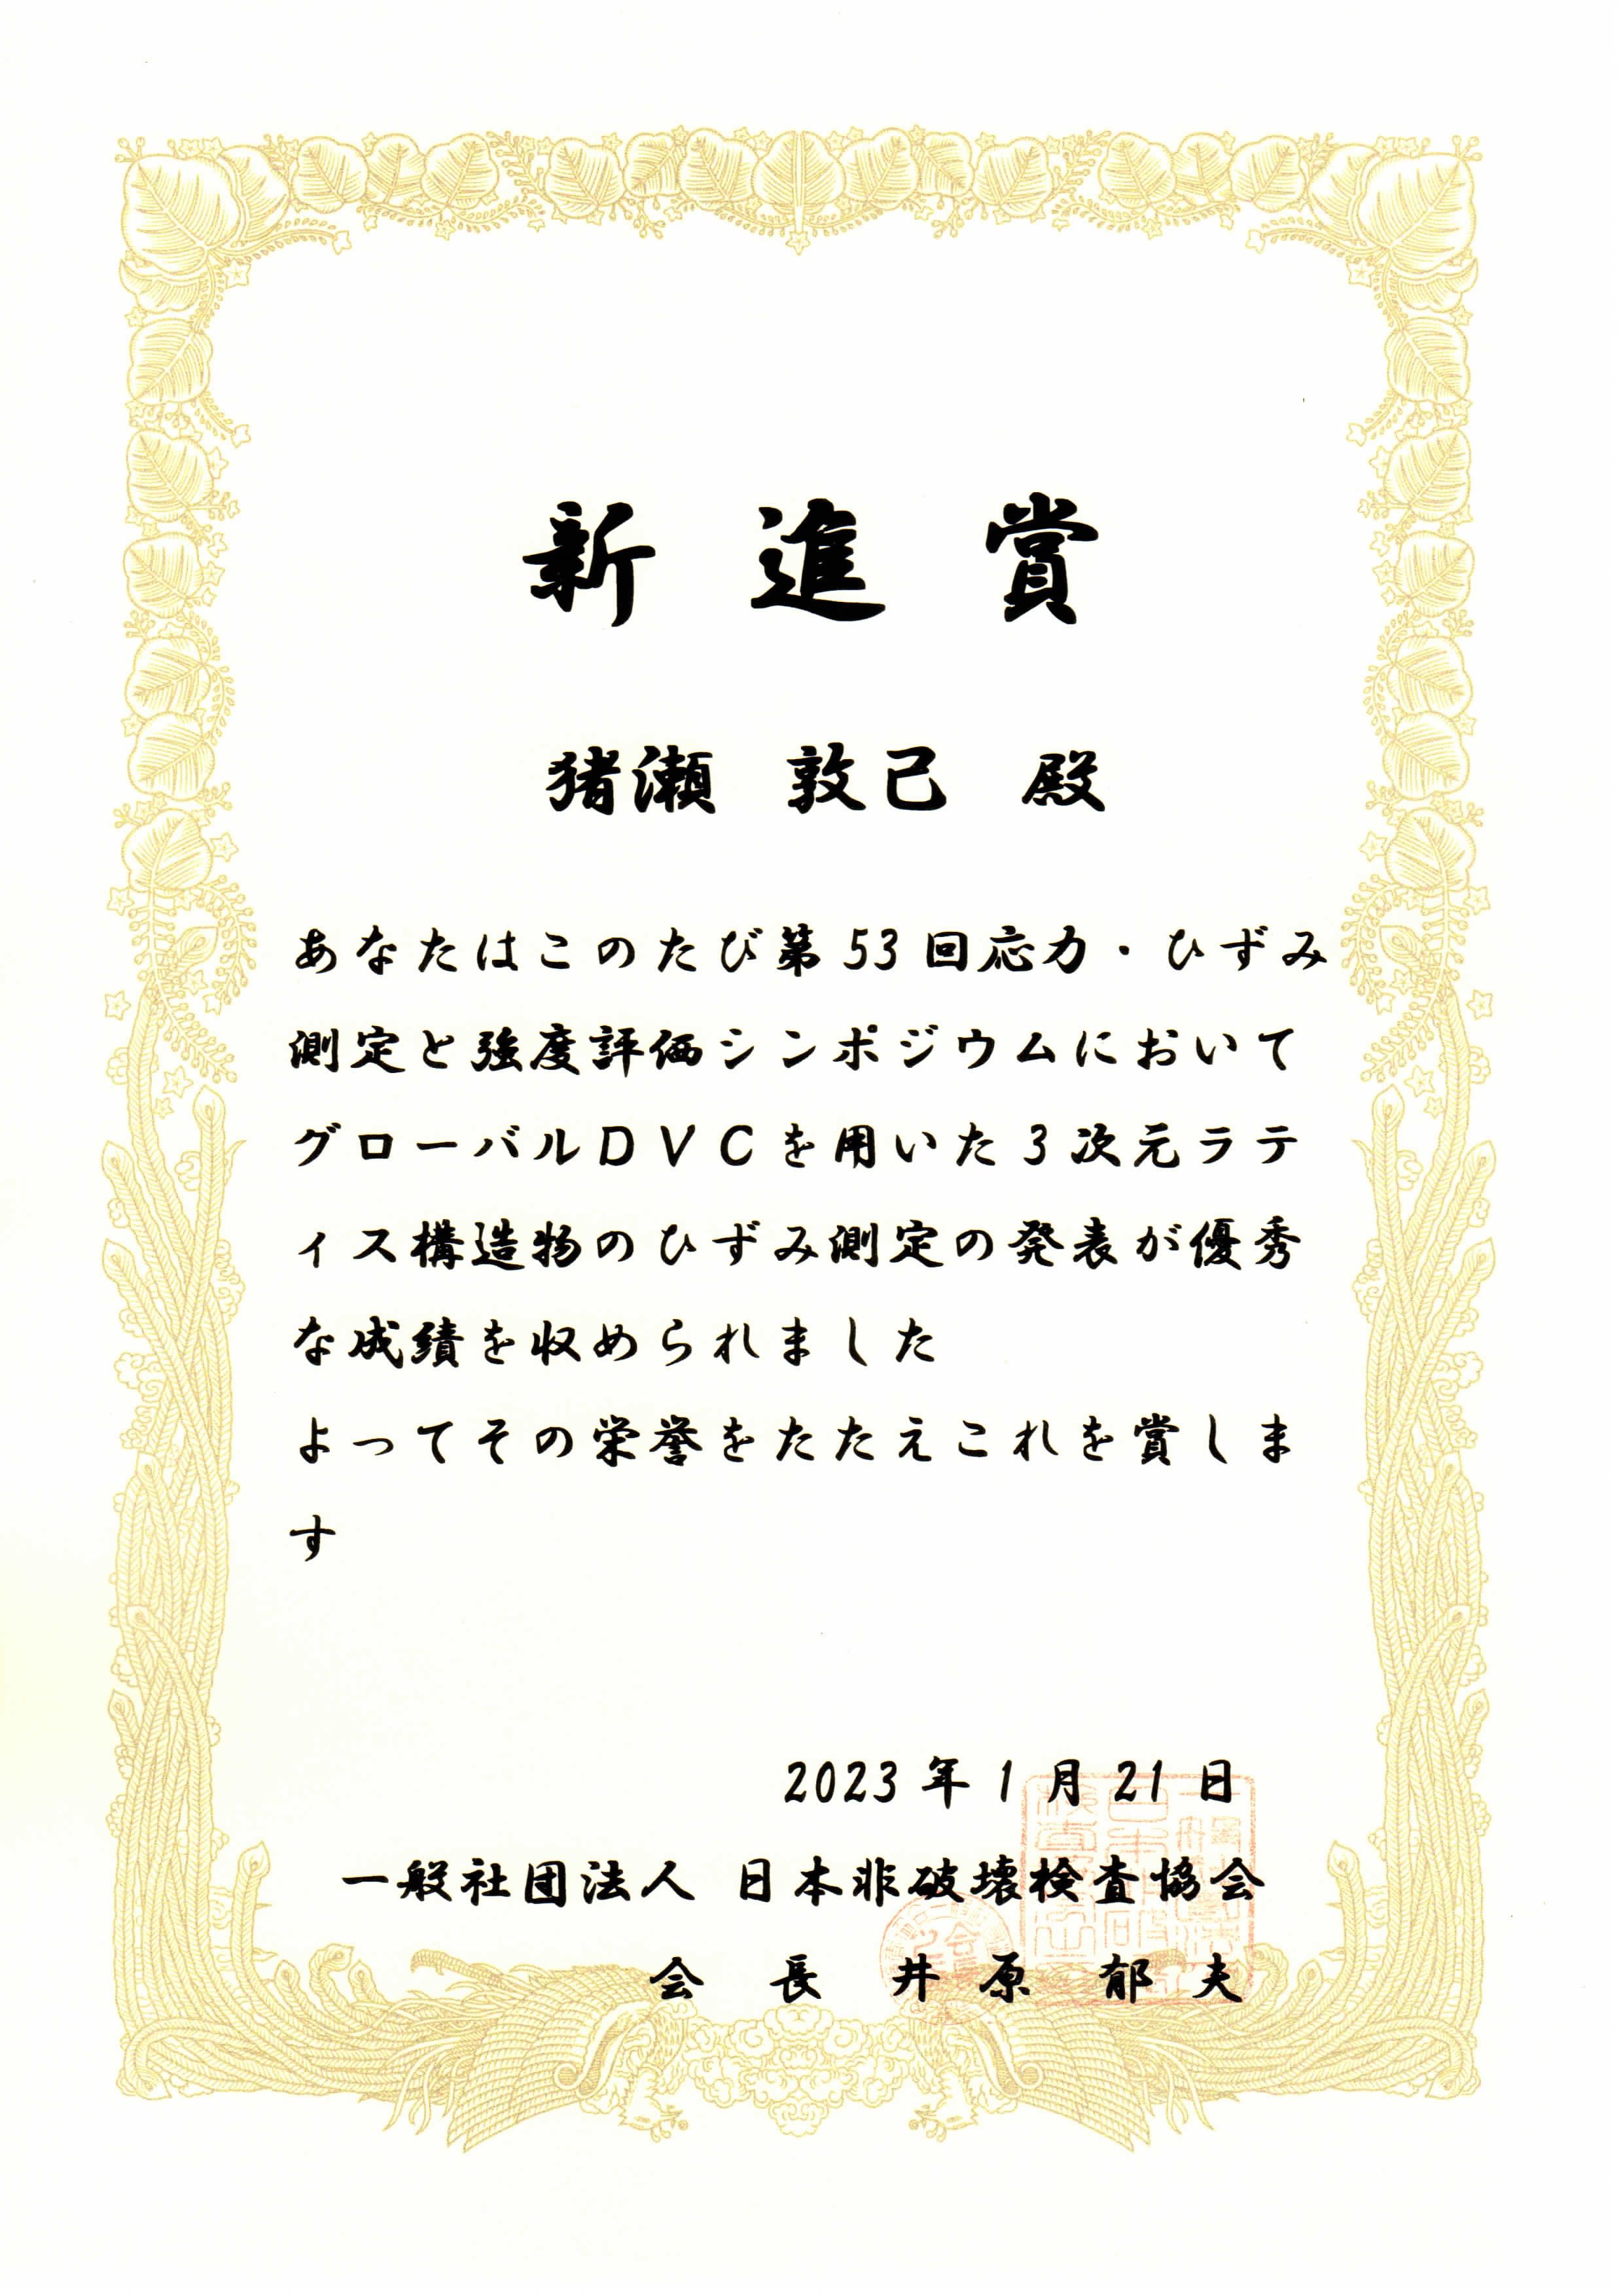 新進賞
猪瀬 敦己 殿
あなたはこのたび第53回応力・ひずみ
測定と強度評価シンポジウムにおいて
グローバルDVCを用いた3次元ラテ
ィス構造物のひずみ測定の発表が優秀
な成績を収められました
よってその栄誉をたたえこれを賞しま
す
2023年1月21日
一般社団法人 日本非破壊検査協会
会長 井原 郁夫